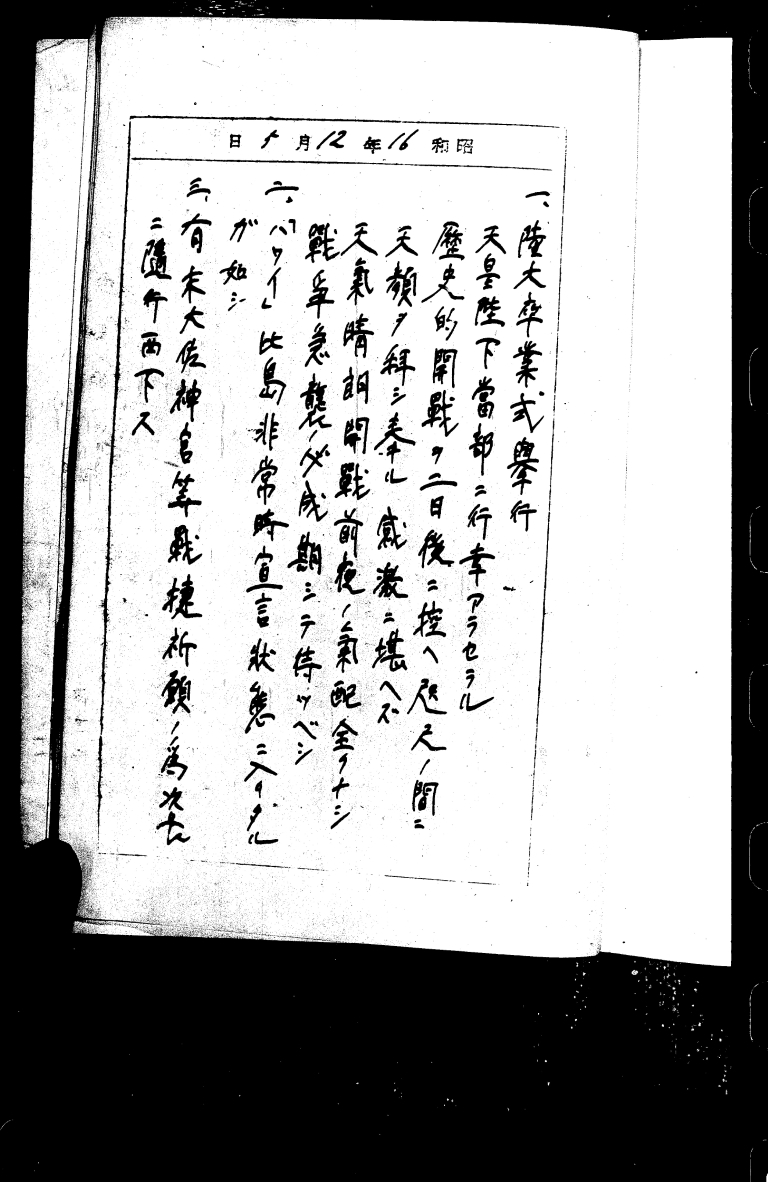 昭和16年12月5日
一、陸大卒業式擧行
天皇陛下當部ニ行幸アラセラル
歴史的開戰ヲ二日後ニ控ヘ咫尺ノ間ニ
天顏ヲ拜シ奉ル感激ニ堪ヘズ
天氣晴朗開戰前夜ノ氣配全クナシ
戰爭急襲ノ必成期シテ待ツベシ
二、「ハワイ」比島非常時宣言狀態ニ入リタル
ガ如シ
三、有末大佐神宮等戰捷祈願ノ爲次長
ニ隨行西下ス